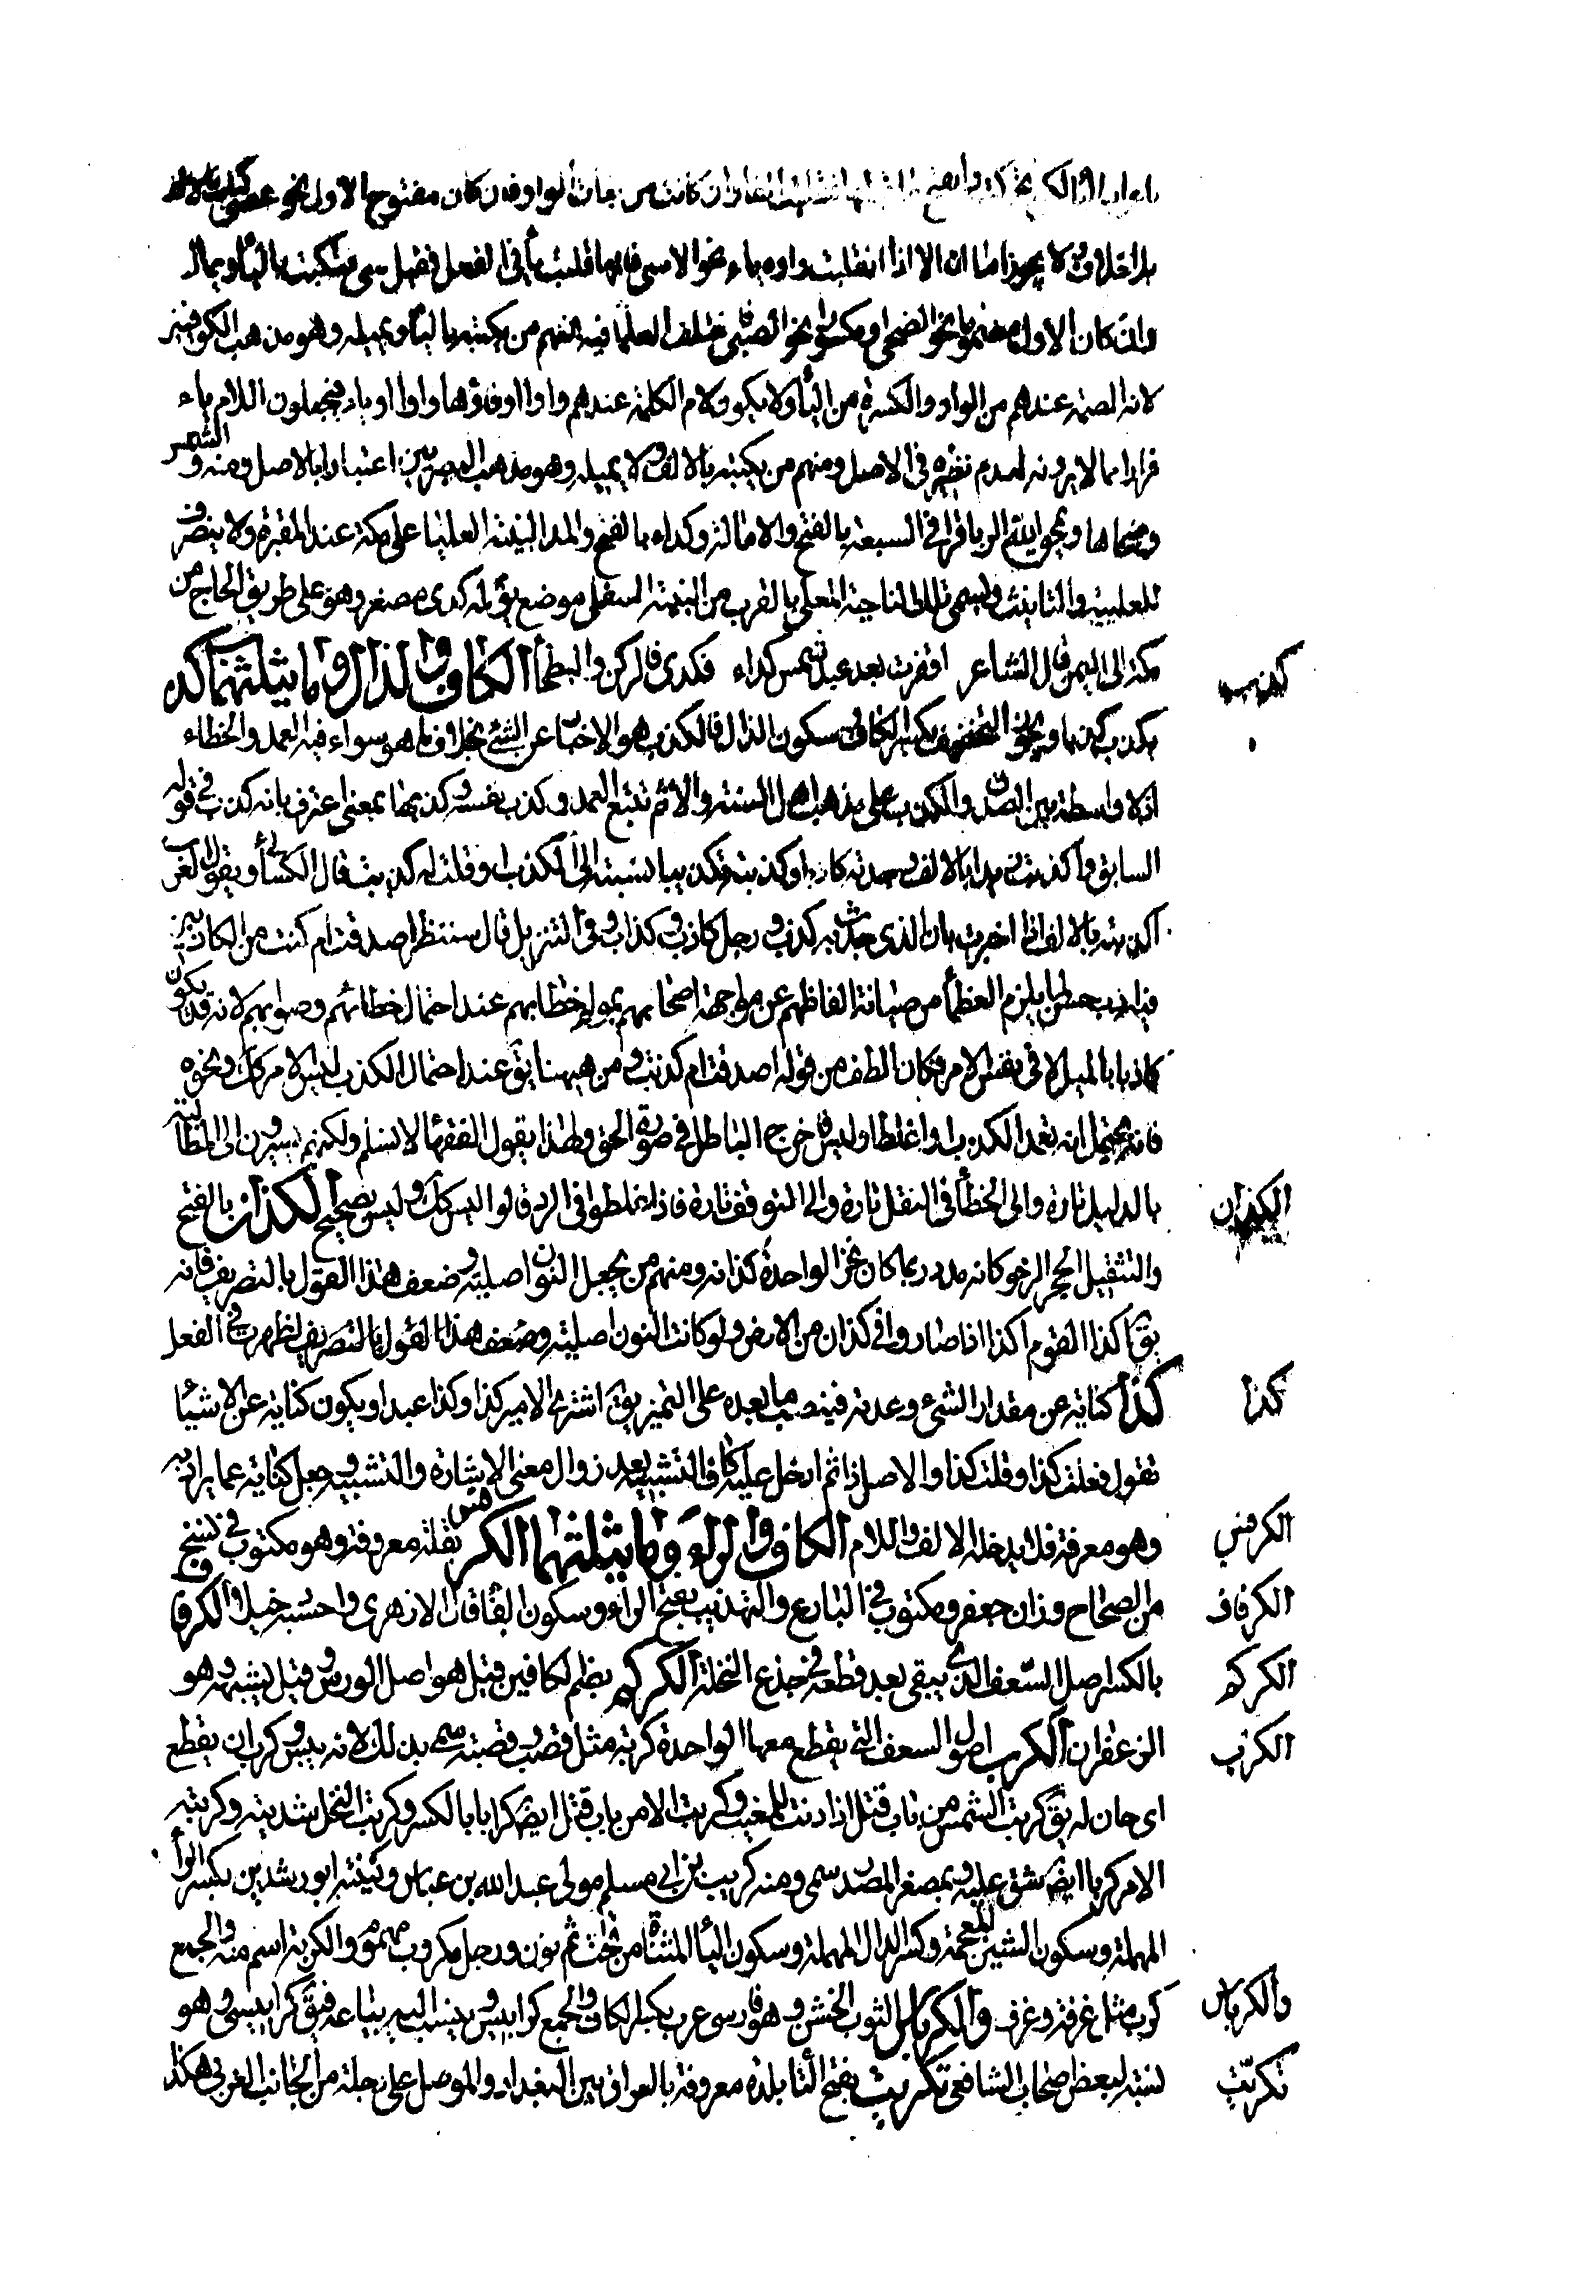 كانت من بنات الواو فان كان مفتوح الاول نحو عصى كتب بالالف
بلا خلاف ولا يجوز امالته الا اذا انقلبت واوه ياء نحو الاسى فانها قلبت ياء فى الفعل فقيل اسى فتكتب بالياء ويمال
وان كان الاول مضموما نحو الضحى او مكسورا نحو الصبى فاختلف العلما فيه فمنهم من يكتبه بالياء ويميله وهو مذهب الكوفيين
لانه الضمه عندهم من الواو والكسرة من الياء ولا يكون لام الكلمة عندهم واوا وفاؤها واوا او ياء فيجعلون اللام ياء
فرارا مما لا يرونه لعدم نظيره فى الاصل ومنهم من يكتبه بالالف ولا يميله وهو مذهب البصريين اعتبارا بالاصل ومنه والشمس
وضحاها ونحو الربا قرأ فى السبعة بالفتح والامالة وكداء بالفتح والمد الثنية العليا على مكة عند المقبرة ولا ينصرف
للعلمية والتانيث وتسمى تلك الناحية المعلى بالقرب من الثنية السفلى موضع يق له كدى مصغر وهو على طريق الخارج من
مكة الى اليمن قال الشاعر اقفرت بعد عبد شمس كداء فكدى فالركن والبطحاء الكاف والذال وما يثلثهما كذب
يكذب كذبا ويجوز التخفيف بكسر الكاف وسكون الذال فالكذب هو الاخبار عن الشئ بخلاف ما هو سواء فيه العمد والخطاء
اذ لا واسطة بين الصدق والكذب على مذهب اهل السنة والاثم تتبع العمد وكذب نفسه وكذبها بمعنى اعترف بانه كذب فى قوله
السابق واكذبت زيدا بالالف وجدته كاذبا وكذبته تكذيبا نسبته الى الكذب او قلت له كذبت قال الكسائى ويقول العرب
اكذبته بالالف اذا اخبرت بان الذى حدث به كذب ورجل كاذب وكذاب وفى التنزيل قال سننظر اصدقت ام كنت من الكاذبين
فيه ادب حسن لما يلزم العظماء من صيانة الفاظهم عن مواجهة اصحابهم بمولم خطابهم عند احتمال خطائهم وصوابهم لانه قد يكون
كاذبا بالميل لا فى نفس الامر فكان الطف من قوله اصدقت ام كذبت ومن هيهنا يق عند احتمال الكذب ليس الامر كك ونحوه
فانه يحتمل انه تعمد الكذب او غلط او لبس فاخرج الباطل فى صورة الحق ولهذا يقول الفقهاء لا نسلم ولكنهم يشيرون الى المطالبة
بالدليل تارة والى الخطأ فى النقل تارة والى التوقف تارة فاذا غلطوا فى الرد قالوا ليس كك وليس بصحيح الكذان بالفتح
والتثقيل الحجر الرخو كانه مدر وربما كان نخر الواحدة كذانه ومنهم من يجعل النون اصلية وضعف هذا القول بالتصريف فانه
يق اكذا القوم اكذا اذا صاروا فى كذان من الارض ولو كانت النون اصلية وضعف هذا القول بالتصريف لظهرت فى الفعل
كذا كناية عن مقدار الشئ وعدته فينصب ما بعده على التميز يق اشترى الامير كذا وكذا عبدا ويكون كناية عن الاشياء
تقول فعلت كذا وقلت كذا والاصل ذا ثم ادخل عليه كاف التشبيه بعد زوال معنى الاشارة والتشبيه وجعل كناية عما يراد به
وهو معرفة فلا يدخله الالف واللام الكاف والراء وما يثلثهما الكرفس بقلة معروفة وهو مكتوب فى نسخ
من الصحاح وزان جعفر ومكتوب فى البارع والتهذيب بفتح الراء وسكون الفاء قال الازهرى واحسبه دخيل والكرفاف
بالكسر اصل السعف الذى يبقى بعد قطعه فى جذع النخلة الكركم بضم الكافين قيل هو اصل الورس وقيل يشبهه وهو
الزعفران الكرب اصول السعف التى يقطع معها الواحدة كربة مثل قصب وقصبة سمى بذلك لانه يبس وكرب ان يقطع
اى حان له يق كربت الشمس من باب قتل اذا دنت للمغيب وكربت الامر من باب قتل ايضا كرابا بالكسر وكربت النخل شذبته وكربته
الامر كربا ايضا شق عليه وبمصغر المصدر سمى ومنه كريب بن ابى مسلم مولى عبد الله بن عباس وكنيته ابو رشدين بكسر الراء
المهملة وسكون الشين المعجمة وكسر الدال المهملة وسكون الياء المثناة من تحت ثم نون ورجل مكروب مهموم والكربة اسم منه والجمع
كرب مثل غرفة وغرف والكرباس الثوب الخشن وهو فارسى عرب بكسر الكاف والجمع كرابيس وينسب اليه بياعه فيق كرابيسى وهو
نسبة لبعض اصحاب الشافعى تكريت بفتح التا بلدة معروفة بالعراق بين البغداد والموصل على دجلة من الجانب الغربى هكذا
كذب
الكذان
كذا
الكرفس
الكرفاف
الكركم
الكرب
والكرباس
تكريت